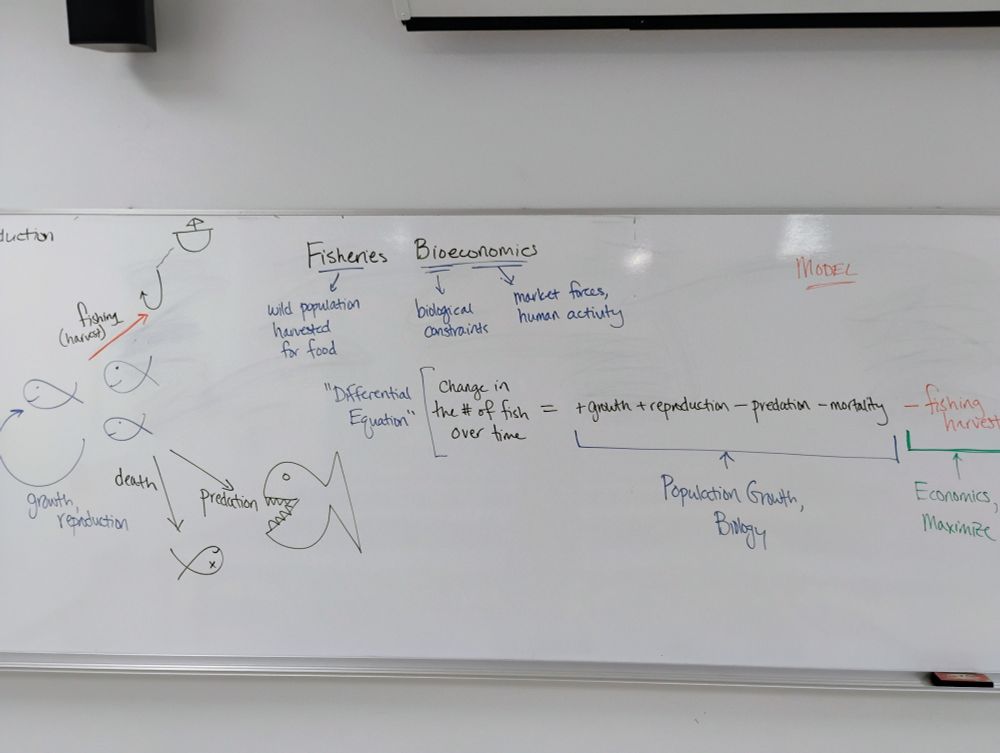 duction
fishing
(harvest)
growth,
reproduction
death
predation
Fisheries Bioeconomics
wild population
harvested
for food
biological
constraints
market forces,
human activity
MODEL
"Differential
Equation"
Change in
the # of fish
over time
= +growth +reproduction - predation - mortality
- fishing
harvest
Population Growth,
Biology
Economics,
Maximize